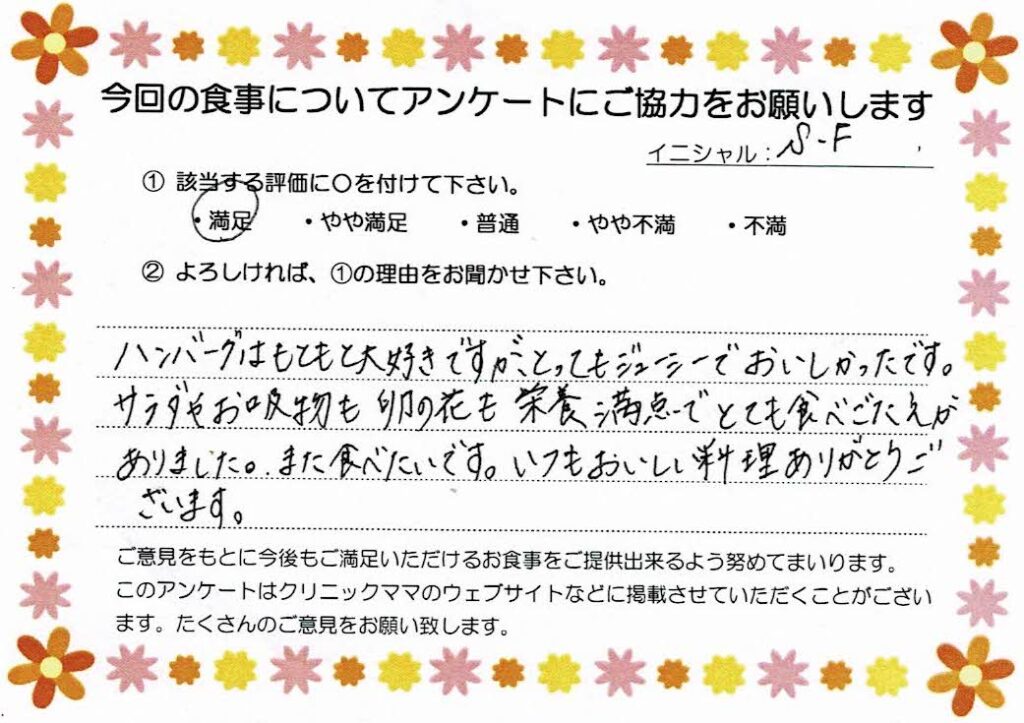 今回の食事についてアンケートにご協力をお願いします
イニシャル：S-F
① 該当する評価に〇を付けて下さい。
・満足 ・やや満足 ・普通 ・やや不満 ・不満
② よろしければ、①の理由をお聞かせ下さい。
ハンバーグはもともと大好きですが、とってもジューシーでおいしかったです。
サラダやお吸物も卯の花も栄養満点でとても食べごたえが
ありました。また食べたいです。いつもおいしい料理ありがとうご
ざいます。
ご意見をもとに今後もご満足いただけるお食事をご提供出来るよう努めてまいります。
このアンケートはクリニックママのウェブサイトなどに掲載させていただくことがござい
ます。たくさんのご意見をお願い致します。